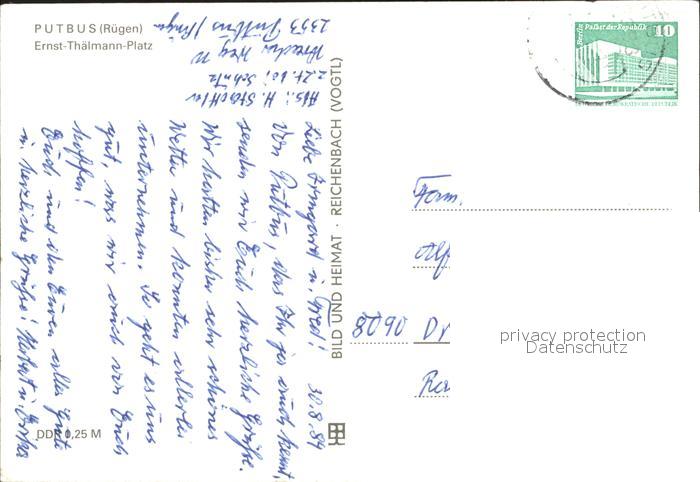 PUTBUS (Rügen)
Ernst-Thälmann-Platz
Abs.: H. 
z. Zt. bei Schütz
Weg 12
2353 Putbus/Rügen
Liebe Irmgard u. Gred! 30.8.84
Von Putbus, das Ihr ja auch kennt,
senden wir Euch herzliche Grüße.
Wir hatten bisher sehr schönes
Wetter und konnten allerlei
unternehmen. So geht es uns
gut, was wir auch von Euch
hoffen!
Euch und den Euren alles Gute
u. herzliche Grüße!
DDR 0,25 M
BILD UND HEIMAT · REICHENBACH (VOGTL)
Berlin Palast der Republik
10
Fam.
Alf
8090 Dr
privacy protection
Datenschutz